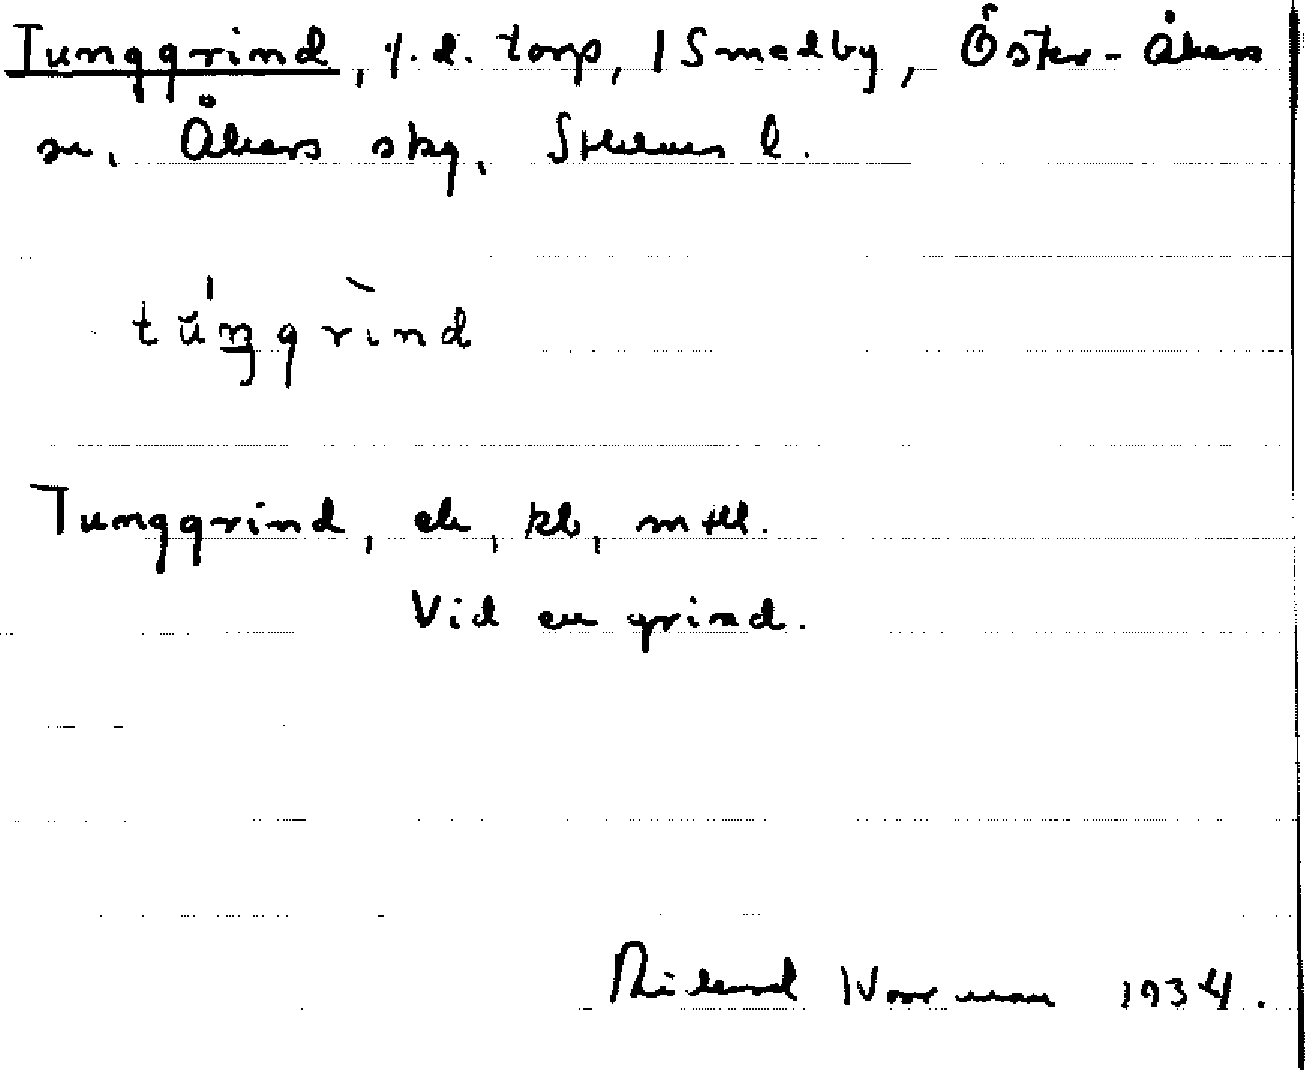 Tunggrind, f.d. torp, 1 Smedby, Öster-Åkers
sn, Åkers skg, Sthlms l.
túŋgrìnd
Tunggrind, ek, kb, mtll.
Vid en grind.
Rickard Norrman 1934.